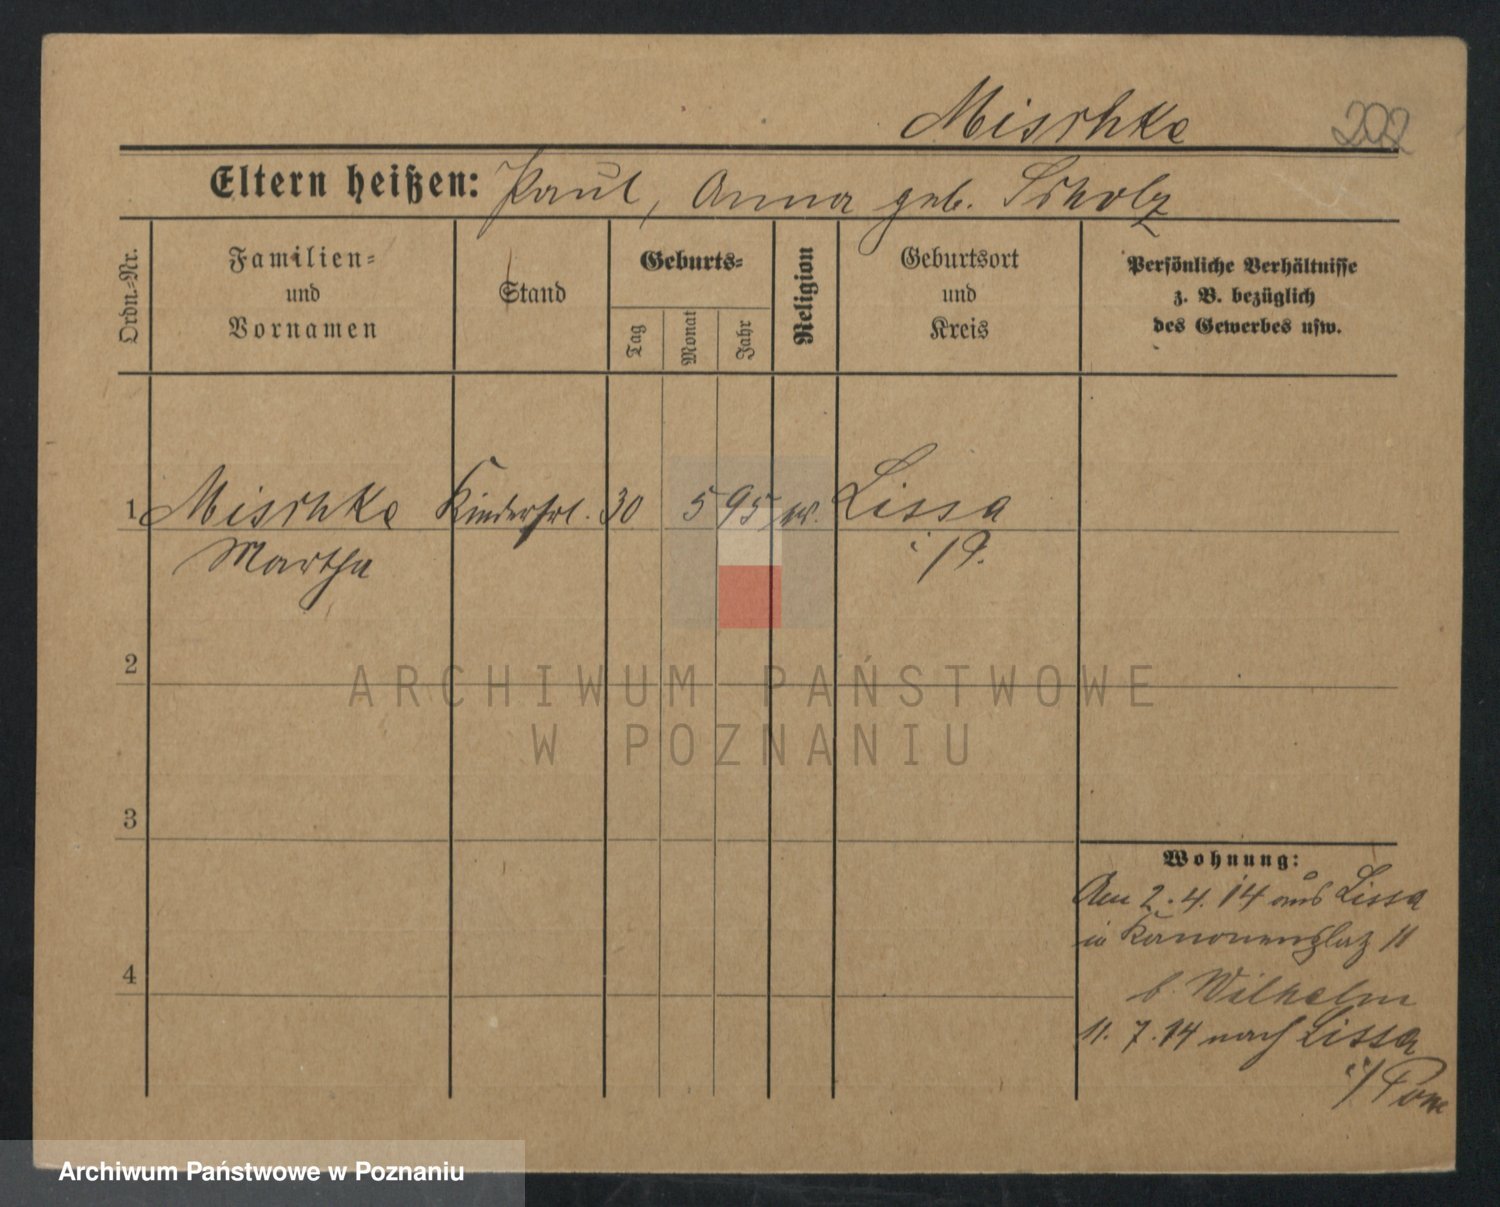 Mischke 202
Eltern heißen: Paul, Anna geb. Scholz
Ordn.-Nr.
Familien-
und
Vornamen
Stand
Geburts-
Tag
Monat
Jahr
Religion
Geburtsort
und
Kreis
Persönliche Verhältnisse
z. B. bezüglich
des Gewerbes usw.
1 Mischke Kinderfrl. 30 5 95 ev. Lissa
Martha i/P.
2
ARCHIWUM PAŃSTWOWE
W POZNANIU
3
Wohnung:
Am 2.4.14 aus Lissa
in Kanonenplatz 11
4
b. Wilhelm
11.7.14 nach Lissa
i/Pom
Archiwum Państwowe w Poznaniu